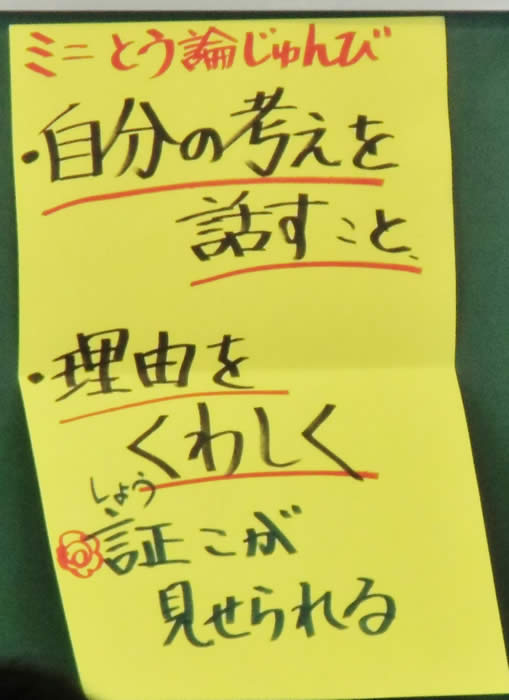 ミニとう論じゅんび
・自分の考えを
話すこと、
・理由を
くわしく
しょう
証こが
見せられる